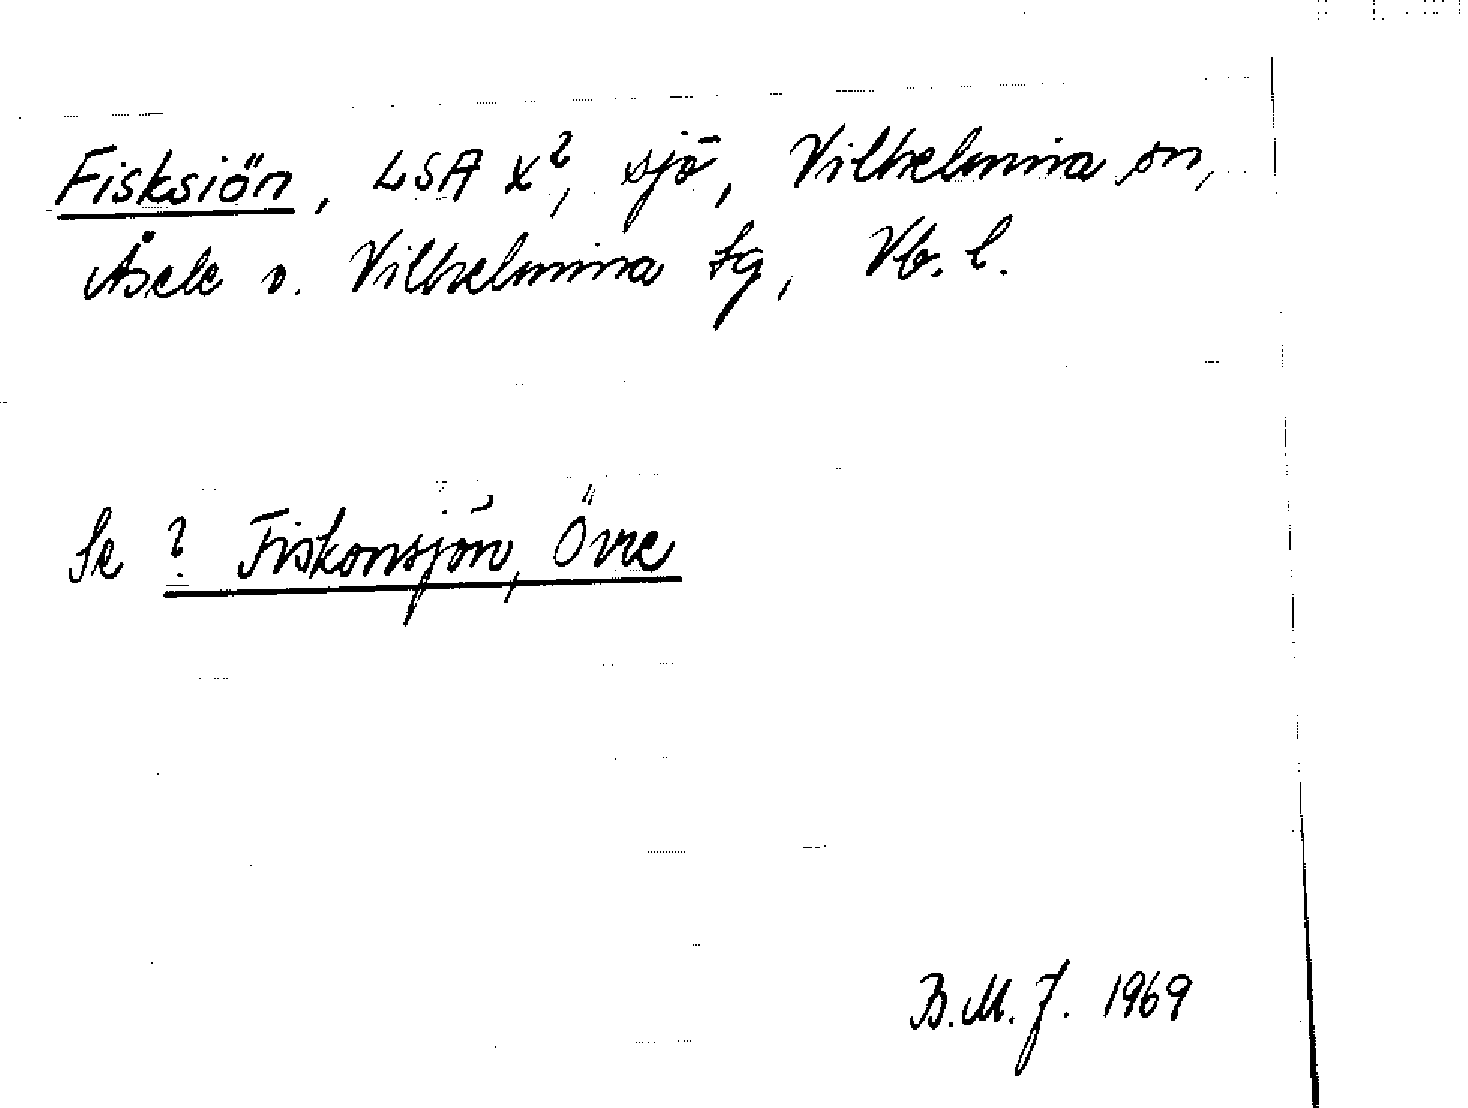 Fisksiön, LSA X², sjö, Vilhelmina sn,
Åsele o. Vilhelmina tg, Vb. l.
Se ? Fiskonsjön, Övre
B.M.J. 1969